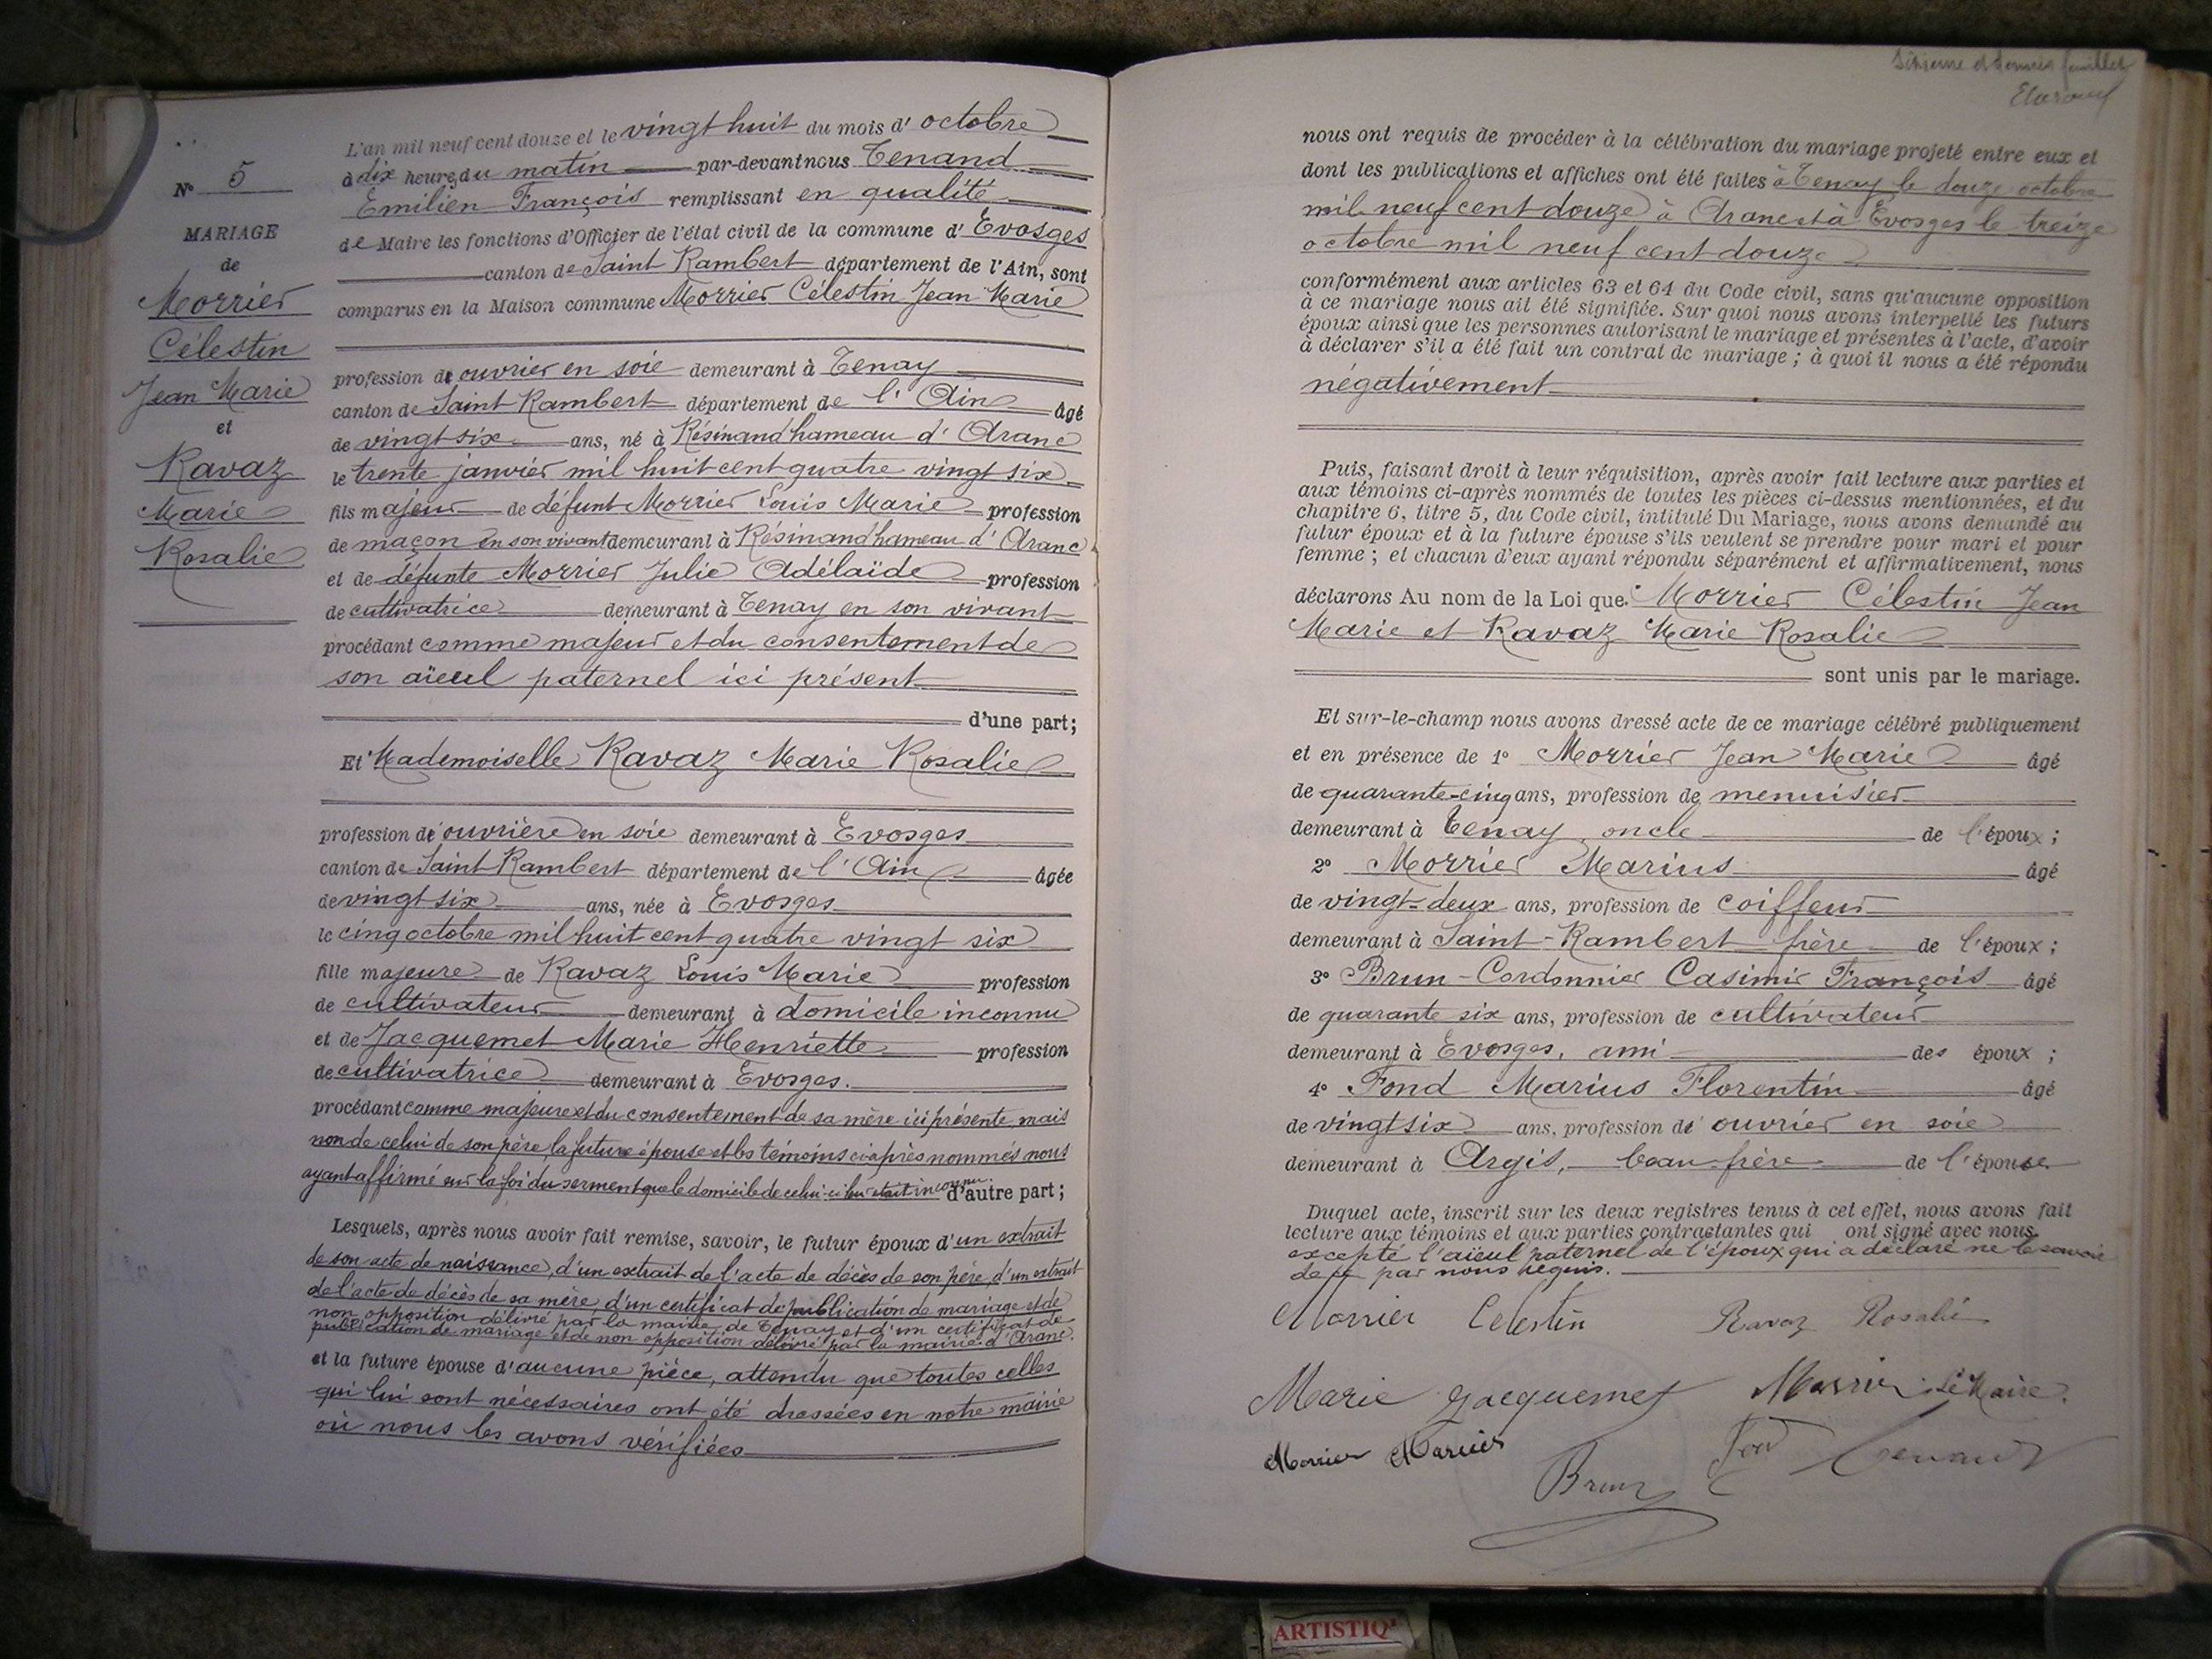 L'an mil neuf cent douze et le vingt huit du mois d' octobre
à dix heures du matin par-devant nous Tenand
Emilien François remplissant en qualité
de Maire les fonctions d'Officier de l'état civil de la commune d' Evosges
canton de Saint Rambert département de l'Ain, sont
comparus en la Maison commune Morrier Célestin Jean Marie
profession d' ouvrier en soie demeurant à Tenay
canton de Saint Rambert département de l' Ain âgé
de vingt six ans, né à Résinand hameau d' Aranc
le trente janvier mil huit cent quatre vingt six
fils majeur de défunt Morrier Louis Marie profession
de maçon en son vivant demeurant à Résinand hameau d' Aranc
et de défunte Morrier Julie Adélaïde profession
de cultivatrice demeurant à Tenay en son vivant
procédant comme majeur et du consentement de
son aïeul paternel ici présent
d'une part;
Et Mademoiselle Ravaz Marie Rosalie
profession d' ouvrière en soie demeurant à Evosges
canton de Saint Rambert département de l' Ain âgée
de vingt six ans, née à Evosges
le cinq octobre mil huit cent quatre vingt six
fille majeure de Ravaz Louis Marie profession
de cultivateur demeurant à domicile inconnu
et de Jacquemet Marie Henriette profession
de cultivatrice demeurant à Evosges.
procédant comme majeure et du consentement de sa mère ici présente mais
non de celui de son père, la future épouse et les témoins ci-après nommés nous
ayant affirmé sur la foi du serment que le domicile de celui-ci lui était inconnu. d'autre part;
Lesquels, après nous avoir fait remise, savoir, le futur époux d'un extrait
de son acte de naissance, d'un extrait de l'acte de décès de son père, d'un extrait
de l'acte de décès de sa mère, d'un certificat de publication de mariage et de
non opposition délivré par la mairie de Tenay et d'un certificat de
publication de mariage et de non opposition délivré par la mairie d'Aranc.
et la future épouse d'aucune pièce, attendu que toutes celles
qui lui sont nécessaires ont été dressées en notre mairie
où nous les avons vérifiées
N° 5
MARIAGE
de
Morrier
Célestin
Jean Marie
et
Ravaz
Marie
Rosalie
feuillet
nous ont requis de procéder à la célébration du mariage projeté entre eux et
dont les publications et affiches ont été faites à Tenay le douze octobre
mil neuf cent douze à Aranc et à Evosges le treize
octobre mil neuf cent douze
conformément aux articles 63 et 64 du Code civil, sans qu'aucune opposition
à ce mariage nous ait été signifiée. Sur quoi nous avons interpellé les futurs
époux ainsi que les personnes autorisant le mariage et présentes à l'acte, d'avoir
à déclarer s'il a été fait un contrat de mariage ; à quoi il nous a été répondu
négativement
Puis, faisant droit à leur réquisition, après avoir fait lecture aux parties et
aux témoins ci-après nommés de toutes les pièces ci-dessus mentionnées, et du
chapitre 6, titre 5, du Code civil, intitulé Du Mariage, nous avons demandé au
futur époux et à la future épouse s'ils veulent se prendre pour mari et pour
femme ; et chacun d'eux ayant répondu séparément et affirmativement, nous
déclarons Au nom de la Loi que Morrier Célestin Jean
Marie et Ravaz Marie Rosalie
sont unis par le mariage.
Et sur-le-champ nous avons dressé acte de ce mariage célébré publiquement
et en présence de 1° Morrier Jean Marie âgé
de quarante-cinq ans, profession de menuisier
demeurant à Tenay, oncle de l'époux ;
2° Morrier Marius âgé
de vingt-deux ans, profession de coiffeur
demeurant à Saint-Rambert frère de l'époux ;
3° Brun-Cordonnier Casimir François âgé
de quarante six ans, profession de cultivateur
demeurant à Evosges, ami des époux ;
4° Fond Marius Florentin âgé
de vingt six ans, profession d' ouvrier en soie
demeurant à Argis, beau-frère de l'épouse
Duquel acte, inscrit sur les deux registres tenus à cet effet, nous avons fait
lecture aux témoins et aux parties contractantes qui ont signé avec nous
excepté l'aïeul paternel de l'époux qui a déclaré ne le savoir
de ce par nous requis.
Morrier Celestin Ravaz Rosalie
Marie Jacquemet Morrier
Morrier Marius
Brun
Tenand
ARTISTIQ